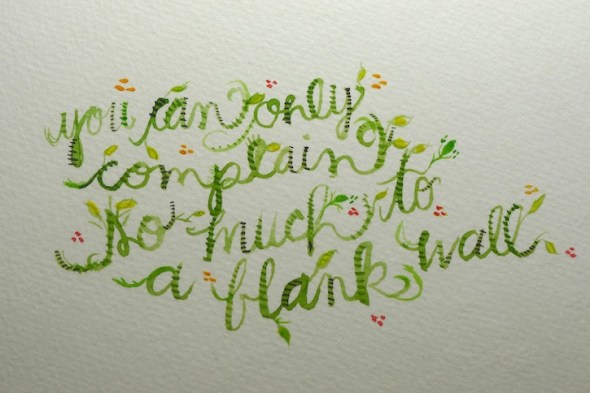 you can only
complain
so much to
a blank wall